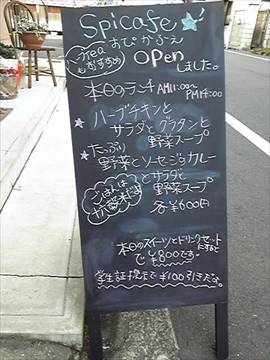 Spicafe
すぴかふぇ
Tea
もおすすめ
Open
しました。
本日のランチ AM11:00〜
PM14:00
ハーブチキンと
サラダとグラタンと
野菜スープ
たっぷり
野菜とソーセージのカレー
とサラダと
野菜スープ
ごはんは
十六穀米
各¥600円
本日のスイーツとドリンクセット
で ¥800です。
学生証提示で¥100引きだよ。